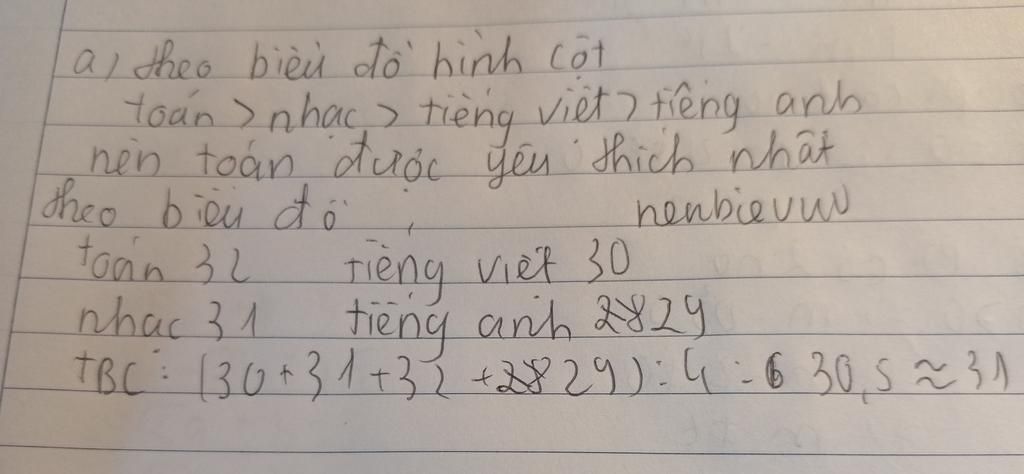 a) theo biểu đồ hình cột
toán > nhạc > tiếng việt > tiếng anh
nên toán được yêu thích nhất
theo biểu đồ, nenbievuw
toán 32 tiếng việt 30
nhạc 31 tiếng anh 29
TBC: (30+31+32+29):4 = 30,5 ≈ 31